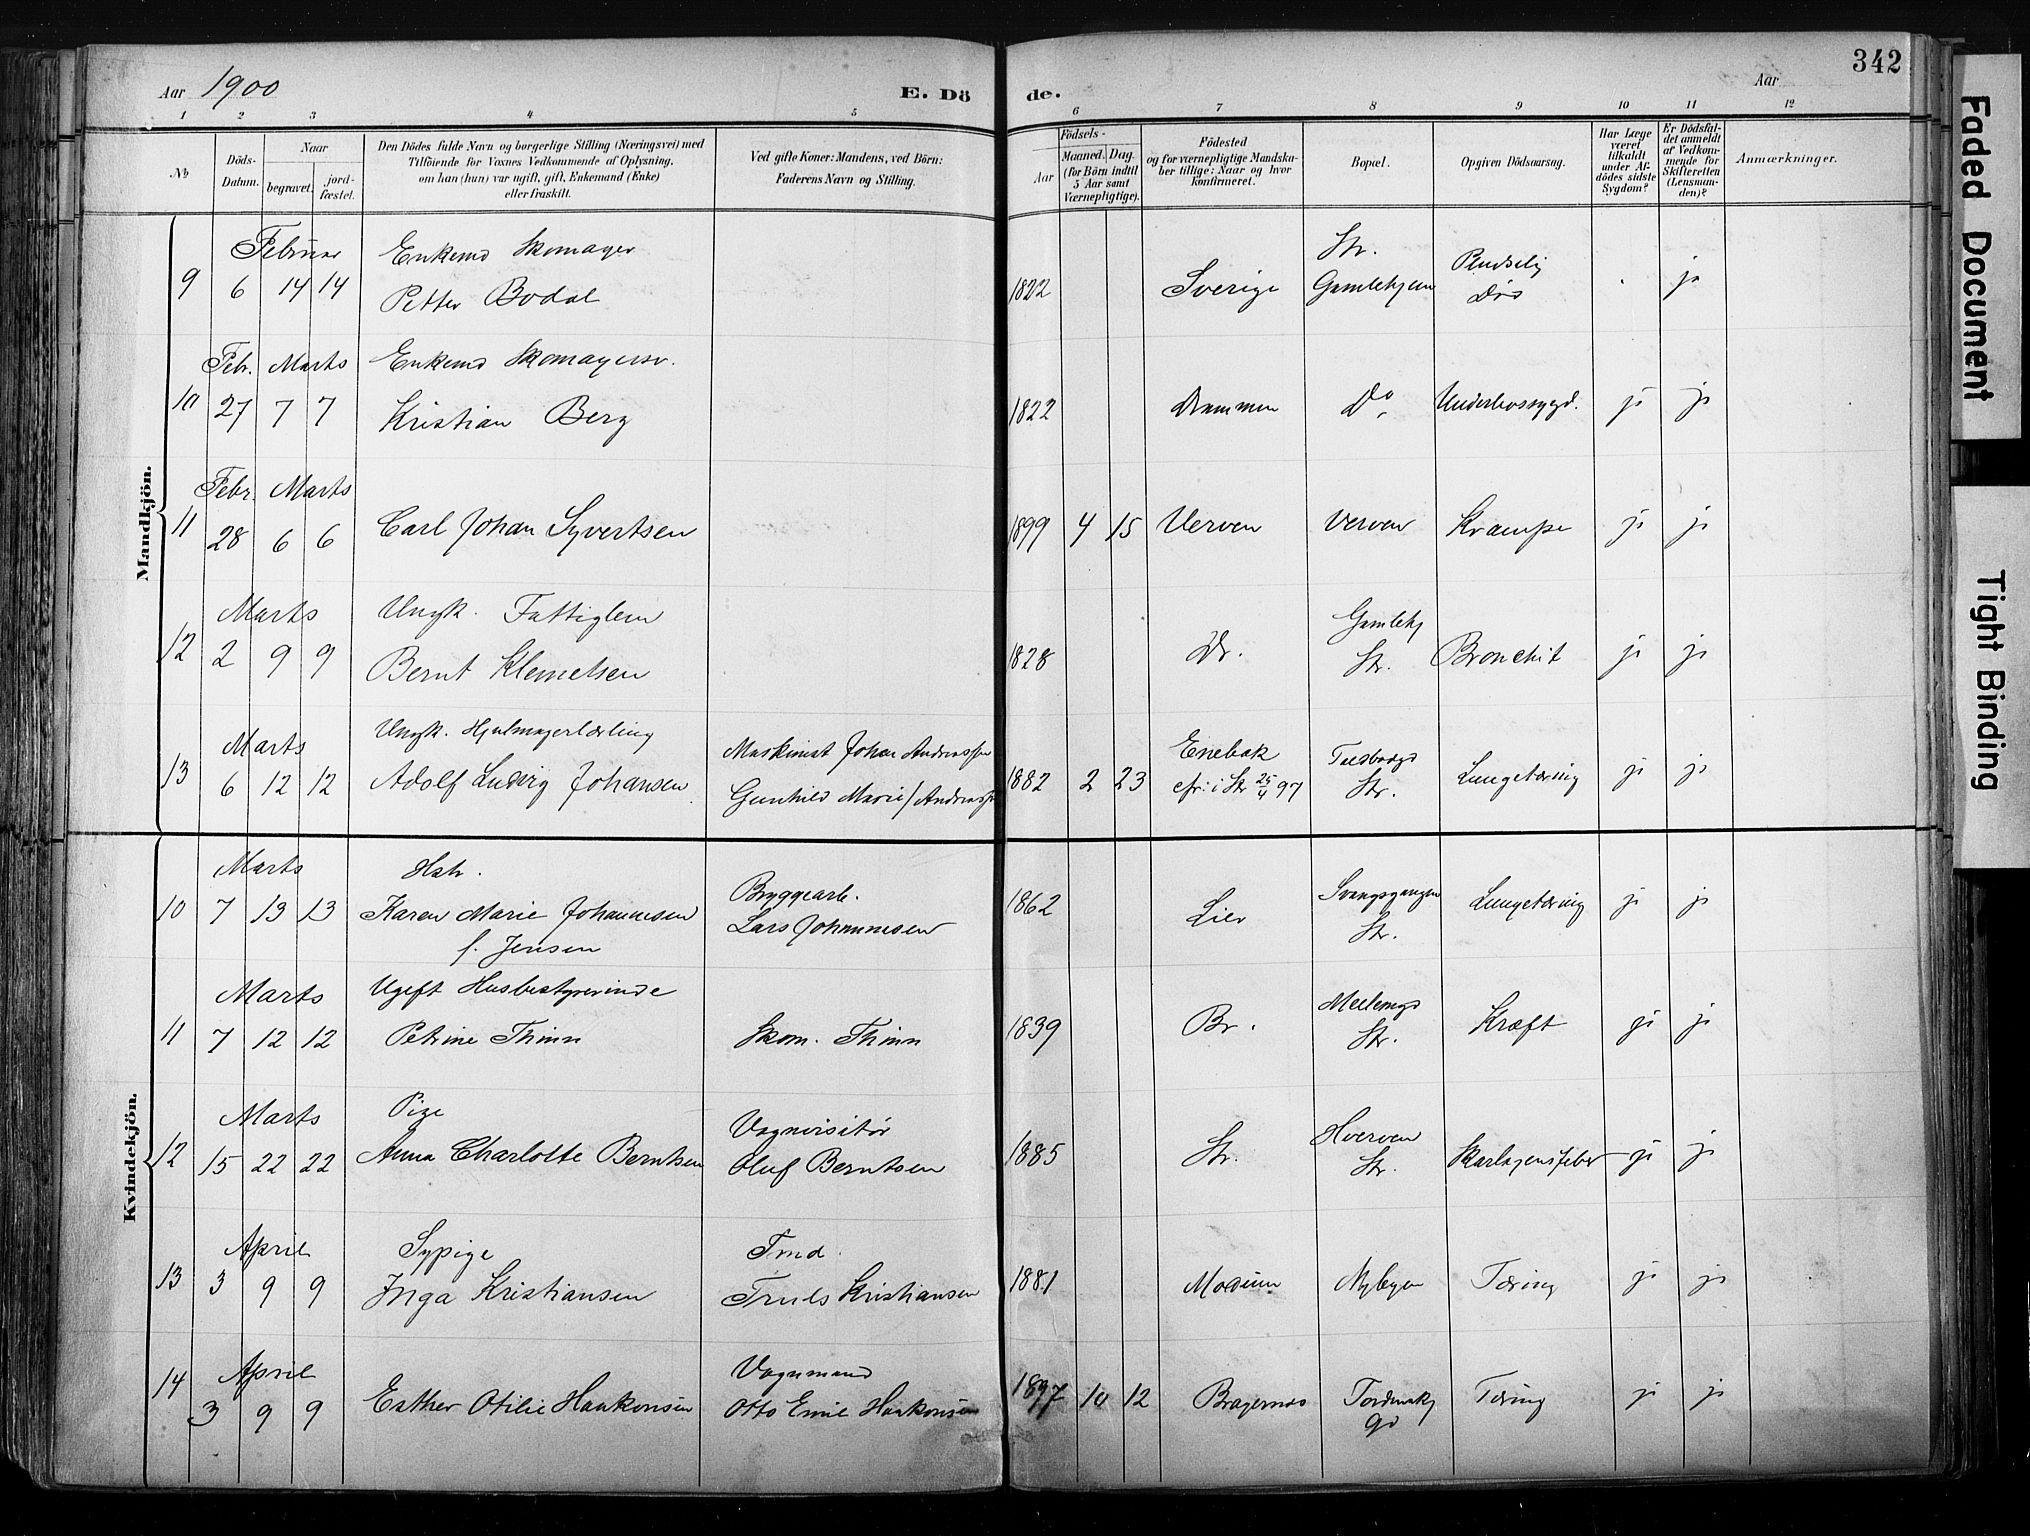 342
Aar 1900
E. Döde.
Aar
1 2 3 4 5 6 7 8 9 10 11 12
No
Döds-Datum.
Naar
begravet.
jordfæstet.
Den Dödes fulde Navn og borgerlige Stilling (Næringsvei) med
Tilföiende for Voxnes Vedkommende af Oplysning,
om han (hun) var ugift, gift, Enkemand (Enke)
eller fraskilt.
Ved gifte Koner: Mandens, ved Börn:
Faderens Navn og Stilling.
Födsels-
Aar
Maaned. Dag.
(for Börn indtil
5 Aar samt
Værnepligtige).
Födested
og for værnepligtige Mandskaber tillige: Naar og hvor
konfirmeret.
Bopæl.
Opgiven Dödsaarsag.
Har Læge
været
tilkaldt
under Afdödes sidste
Sygdom?
Er Dödsfaldet anmeldt
af Vedkommende for
Skifteretten
(Lensmanden)?
Anmærkninger.
Mandkjön.
Februar Enkemd Skomager Str.
9 6 14 14 Petter Bodal 1822 Sverige Gamlehjem Pludselig Død ja
Febr. Marts Enkemd Skomagersv.
10 27 7 7 Kristian Berg 1822 Drammen Do Underlivssygd. ja ja
Febr. Marts
11 28 6 6 Carl Johan Syvertsen 1899 4 15 Verven Verven Krampe ja ja
Marts Ungk. Fattiglem Gamlehj
12 2 9 9 Bernt Klemetsen 1828 Dr. Str. Bronchit ja ja
Marts Ungk. Hjulmagerlærling Maskinist Johan Andreassen Enebak
13 6 12 12 Adolf Ludvig Johansen Gunhild Marie / Andreassen 1882 2 23 cfr: i Str 25/4 97 Str. Lungetæring ja ja
Kvindekjön.
Marts Hstr. Bryggearb.
10 7 13 13 Karen Marie Johannesen Lars Johannesen 1862 Lier Svangsgangen Str. Lungetæring ja ja
f. Jensen
Marts Ugift Husbestyrerinde
11 7 12 12 Petrine Thinn Skom. Thinn 1839 Br. Str. Kræft ja ja
Marts Pige Vognvisitør Hverven
12 15 22 22 Anna Charlotte Berntsen Oluf Berntsen 1885 Str. Str. Skarlagensfeber ja ja
April Sypige Tmd.
13 3 9 9 Inga Kristiansen Truls Kristiansen 1881 Modum Nybyen Tæring ja ja
April Vognmand
14 3 9 9 Esther Otilie Haakonsen Otto Emil Haakonsen 1897 10 12 Bragernes Tordenskj gd Tæring ja ja
Faded Document
Tight Binding